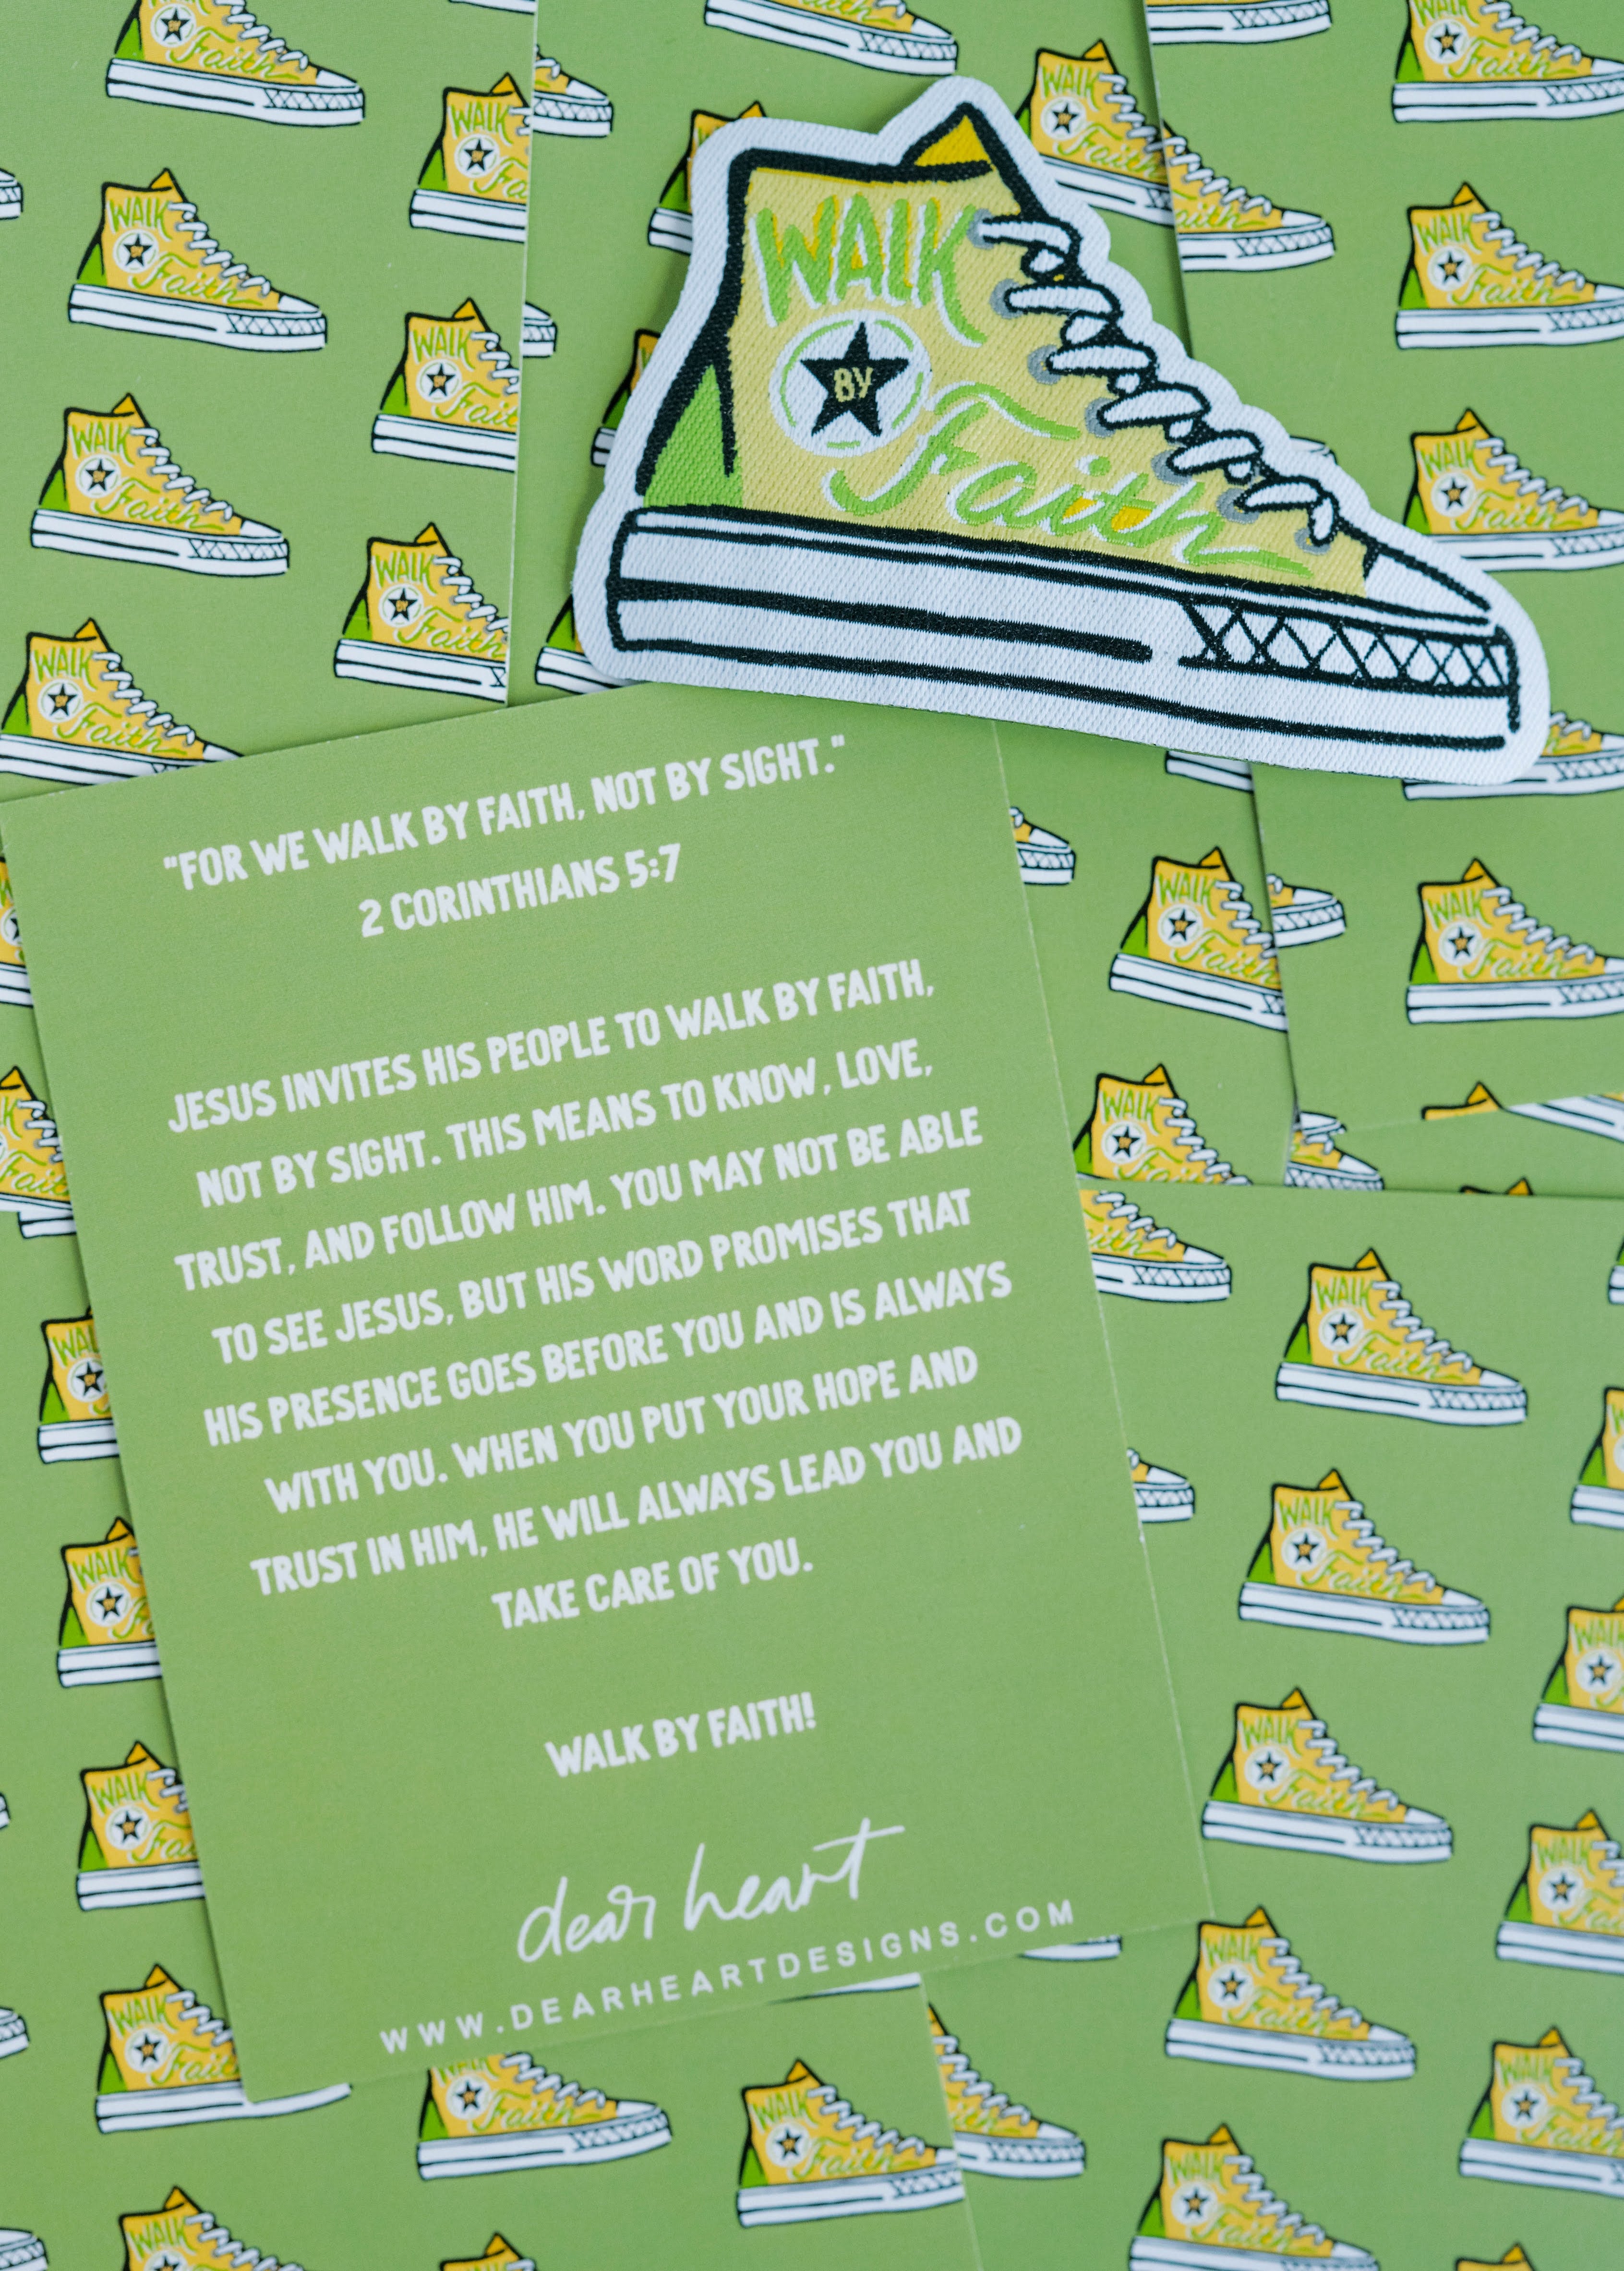 WALK
BY
Faith
"FOR WE WALK BY FAITH, NOT BY SIGHT."
2 CORINTHIANS 5:7
JESUS INVITES HIS PEOPLE TO WALK BY FAITH,
NOT BY SIGHT. THIS MEANS TO KNOW, LOVE,
TRUST, AND FOLLOW HIM. YOU MAY NOT BE ABLE
TO SEE JESUS, BUT HIS WORD PROMISES THAT
HIS PRESENCE GOES BEFORE YOU AND IS ALWAYS
WITH YOU. WHEN YOU PUT YOUR HOPE AND
TRUST IN HIM, HE WILL ALWAYS LEAD YOU AND
TAKE CARE OF YOU.
WALK BY FAITH!
dear heart
WWW.DEARHEARTDESIGNS.COM